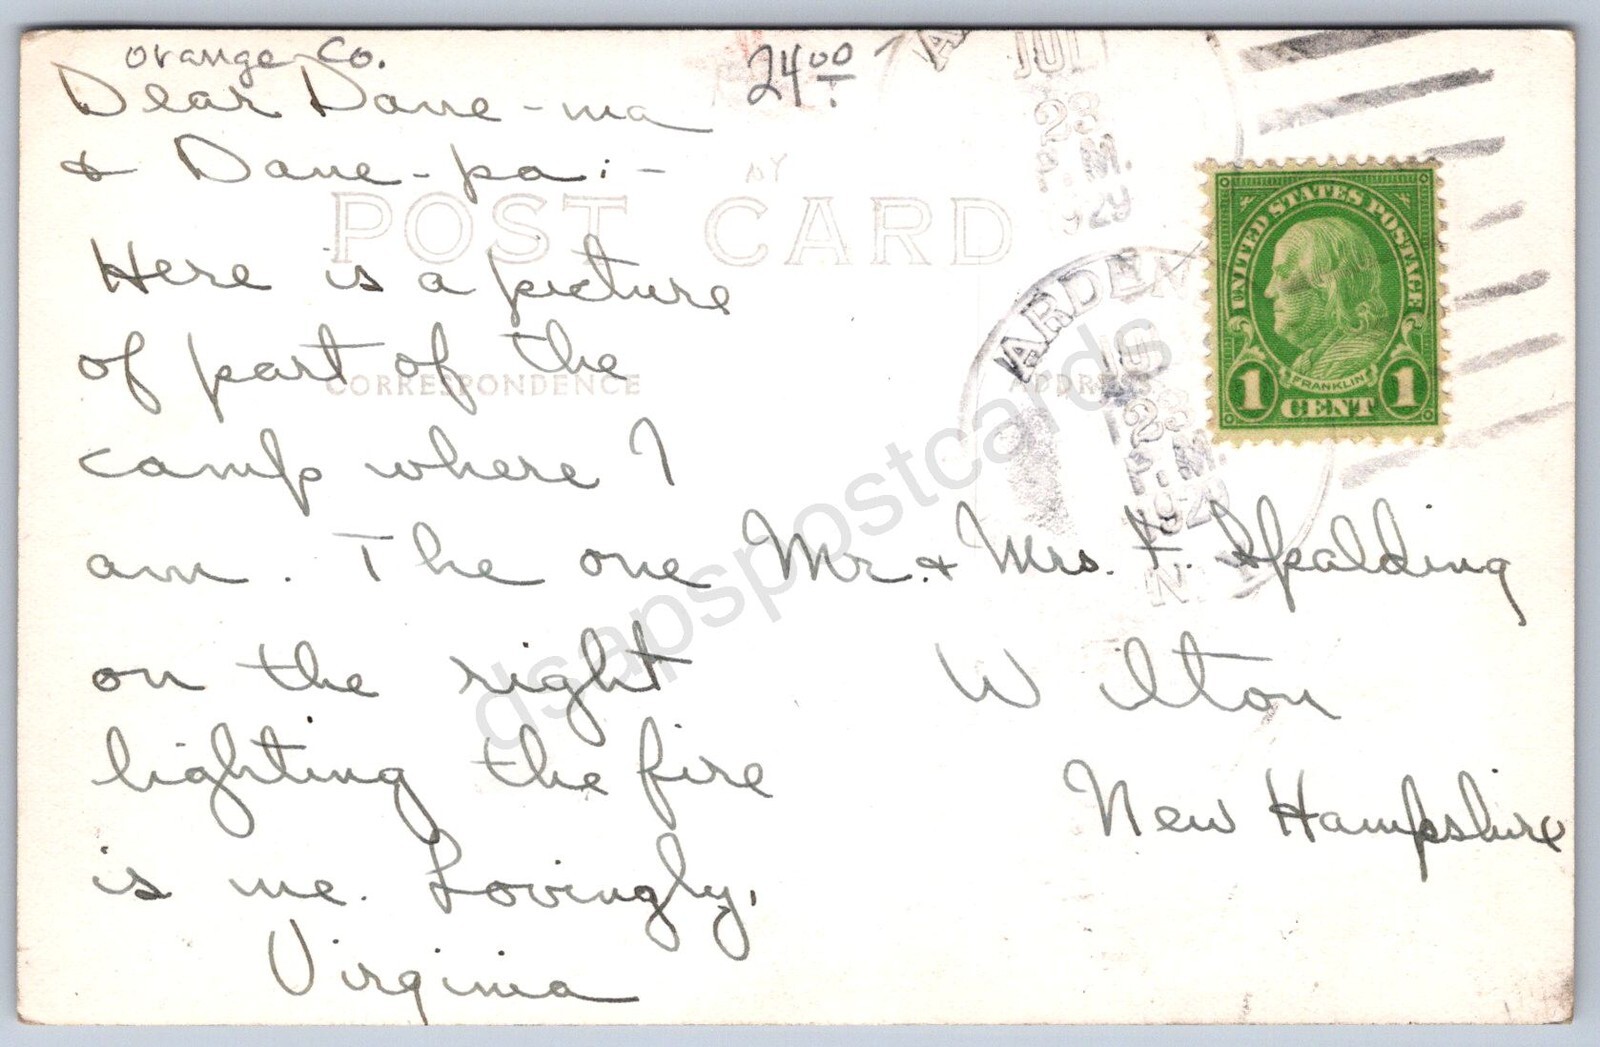 orange Co.
24 00
Dear Dane-ma
& Dane-pa:-
POST CARD
Here is a picture
of part of the
CORRESPONDENCE
ADDRESS
camp where I
am. The one
on the right
lighting the fire
is me. Lovingly,
Virginia
Mr. & Mrs. F. Spalding
Wilton
New Hampshire
JUL
28
P.M.
1929
ARDEN
JUL
28
P.M.
1929
N.Y.
UNITED STATES POSTAGE
FRANKLIN
1 CENT 1
dsapspostcards